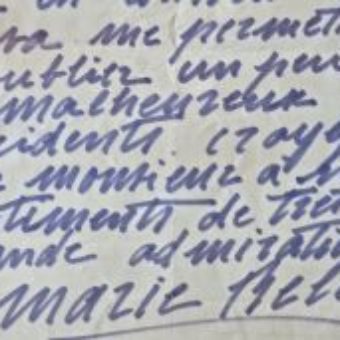 va me permet
oublier un peu
malheureux
cidents croye
monsieur à
timents de trè
ande admiratio
marie Bel